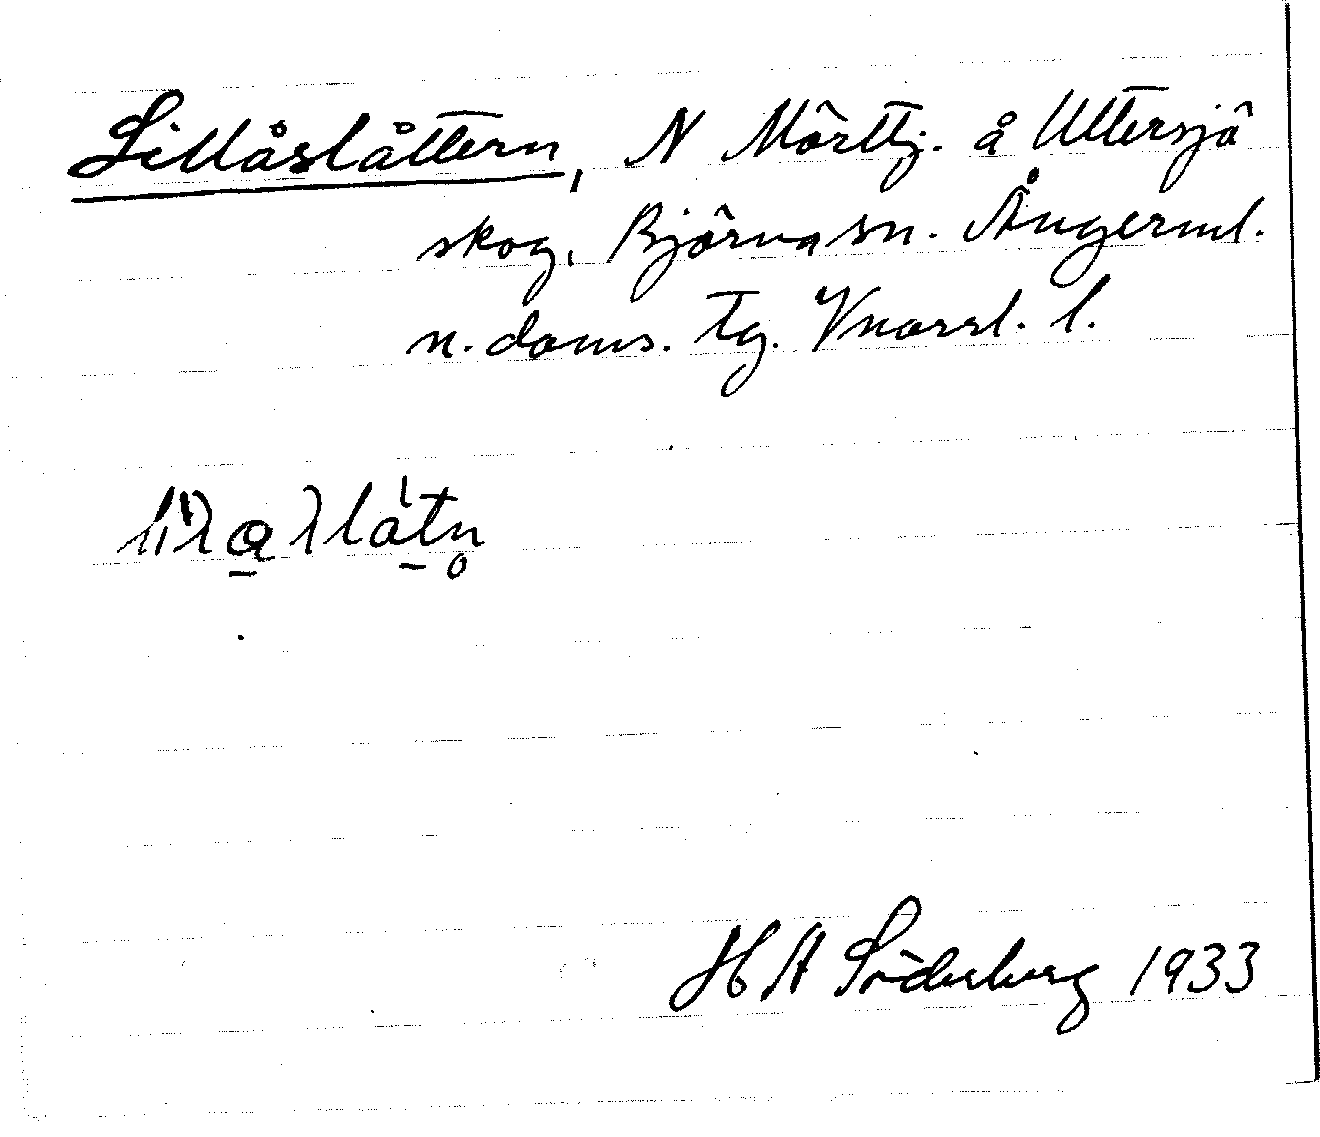 Lillåslåttern, N Mörttj. å Uttersjö
skog, Björna sn. Ångerml.
n. doms. tg. Vnorrl. l.
H A Söderberg 1933